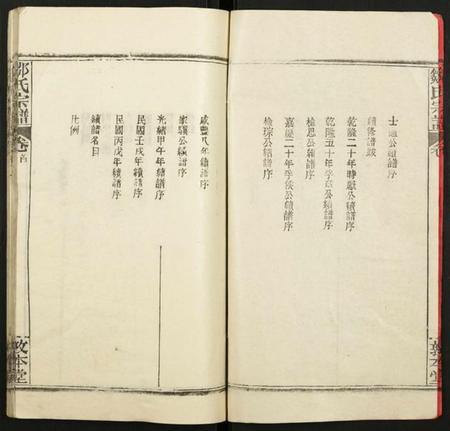 士迪公續譜序
續修譜跋
乾隆二十年時懿公續譜序
乾隆五十年孚公續譜序
檢思公續譜序
嘉慶二十年孚俟公續譜序
檢琮公續譜序
咸豐八年續譜序
家驥公續譜序
光緒甲午年續譜序
民國壬戌年續譜序
民國丙戌年續譜序
續譜名目
凡例
鄒氏宗譜
卷首
敦本堂
鄒氏宗譜
卷
敦本堂